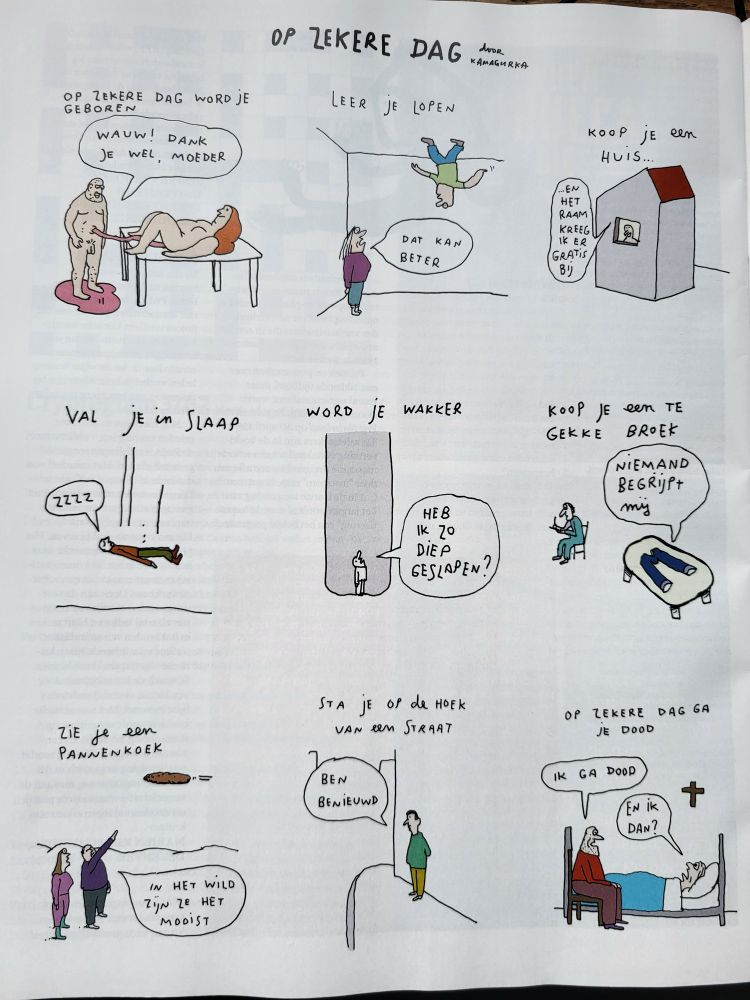 OP ZEKERE DAG door KAMAGURKA
OP ZEKERE DAG WORD JE
GEBOREN
WAUW! DANK
JE WEL, MOEDER
LEER JE LOPEN
DAT KAN
BETER
KOOP JE een
HUIS...
...EN
HET
RAAM
KREEG
IK ER
GRATIS
BIJ
VAL je in SLAAP
ZZZZ
WORD JE WAKKER
HEB
IK ZO
DIEP
GESLAPEN?
KOOP JE een TE
GEKKE BROEK
NIEMAND
BEGRIJPt
mij
ZIE je een
PANNENKOEK
IN HET WILD
ZIJN ZE HET
MOOIST
STA JE OP de HOEK
VAN een STRAAT
BEN
BENIEUWD
OP ZEKERE DAG GA
JE DOOD
IK GA DOOD
EN IK
DAN?